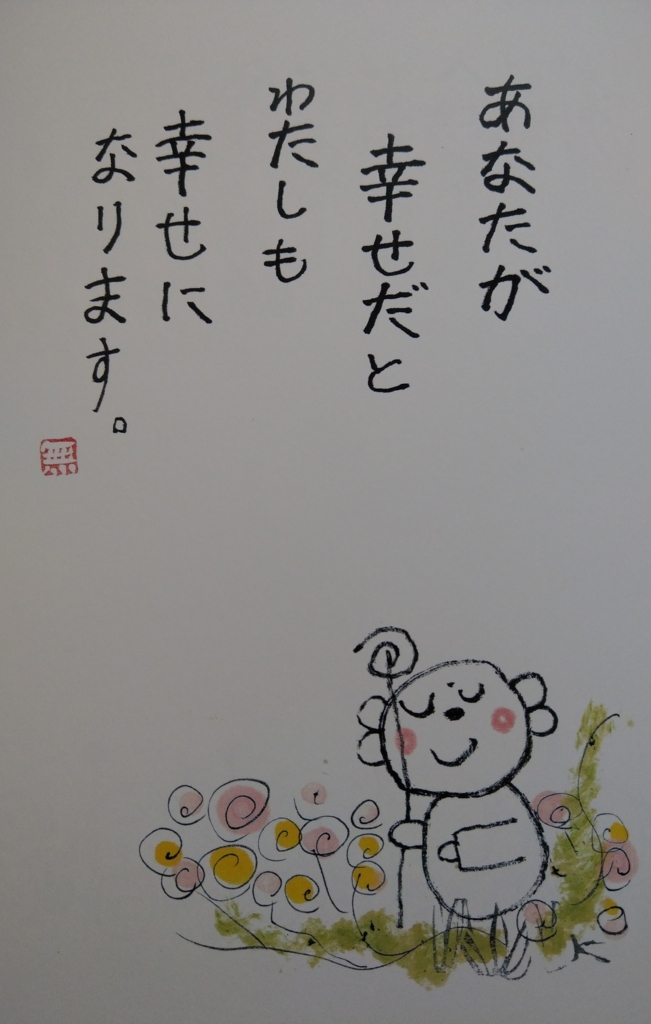 あなたが
幸せだと
わたしも
幸せに
なります。
無